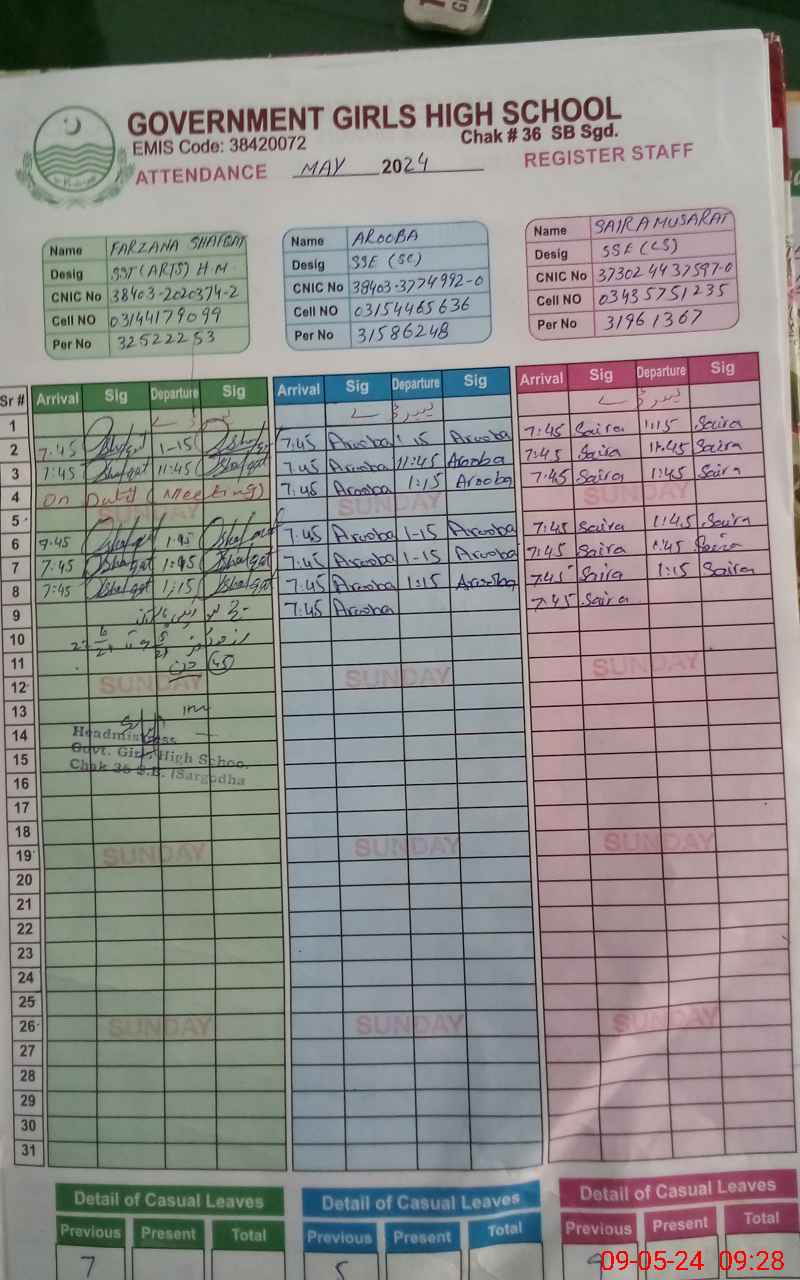 GOVERNMENT GIRLS HIGH SCHOOL
EMIS Code: 38420072
Chak # 36 SB Sgd.
ATTENDANCE MAY 2024 REGISTER STAFF
Name FARZANA SHAFQAT
Desig SST (ARTS) H.M
CNIC No 38403-2020374-2
Cell NO 03144179099
Per No 32522253
Name AROOBA
Desig SSE (SC)
CNIC No 38403-3774992-0
Cell NO 03154465636
Per No 31586248
Name SAIRA MUSARAT
Desig SSE (CS)
CNIC No 37302 4437597-0
Cell NO 03435751235
Per No 31961367
Sr # Arrival Sig Departure Sig Arrival Sig Departure Sig Arrival Sig Departure Sig
1
2 7:45 Shafqat 1-15 Shafqat 7:45 Arooba 1 15 Arooba 7:45 Saira 1:15 Saira
3 7:45 Shafqat 11:45 Shafqat 7:45 Arooba 11:45 Arooba 7:45 Saira 11.45 Saira
4 On Duty (Meeting) 7:45 Arooba 1:15 Arooba 7:45 Saira 1:45 Saira
5 SUNDAY SUNDAY SUNDAY
6 7:45 Shafqat 7:45 Arooba 1-15 Arooba 7:45 Saira 1:45 Saira
7 7:45 Shafqat 7:45 Arooba 1-15 Arooba 7:45 Saira 1:45 Saira
8 7:45 Shafqat 1:15 Shafqat 7:45 Arooba 1:15 Arooba 7:45 Saira 1:15 Saira
9 7:45 Arooba 7:45 Saira
10
11
12 SUNDAY SUNDAY SUNDAY
13
14
Headmistress
15
Govt. Girls High School
Chak 36 S.B. (Sargodha
16
17
18
19 SUNDAY SUNDAY SUNDAY
20
21
22
23
24
25
26 SUNDAY SUNDAY SUNDAY
27
28
29
30
31
Detail of Casual Leaves Detail of Casual Leaves Detail of Casual Leaves
Previous Present Total Previous Present Total Previous Present Total
7 5
09-05-24 09:28